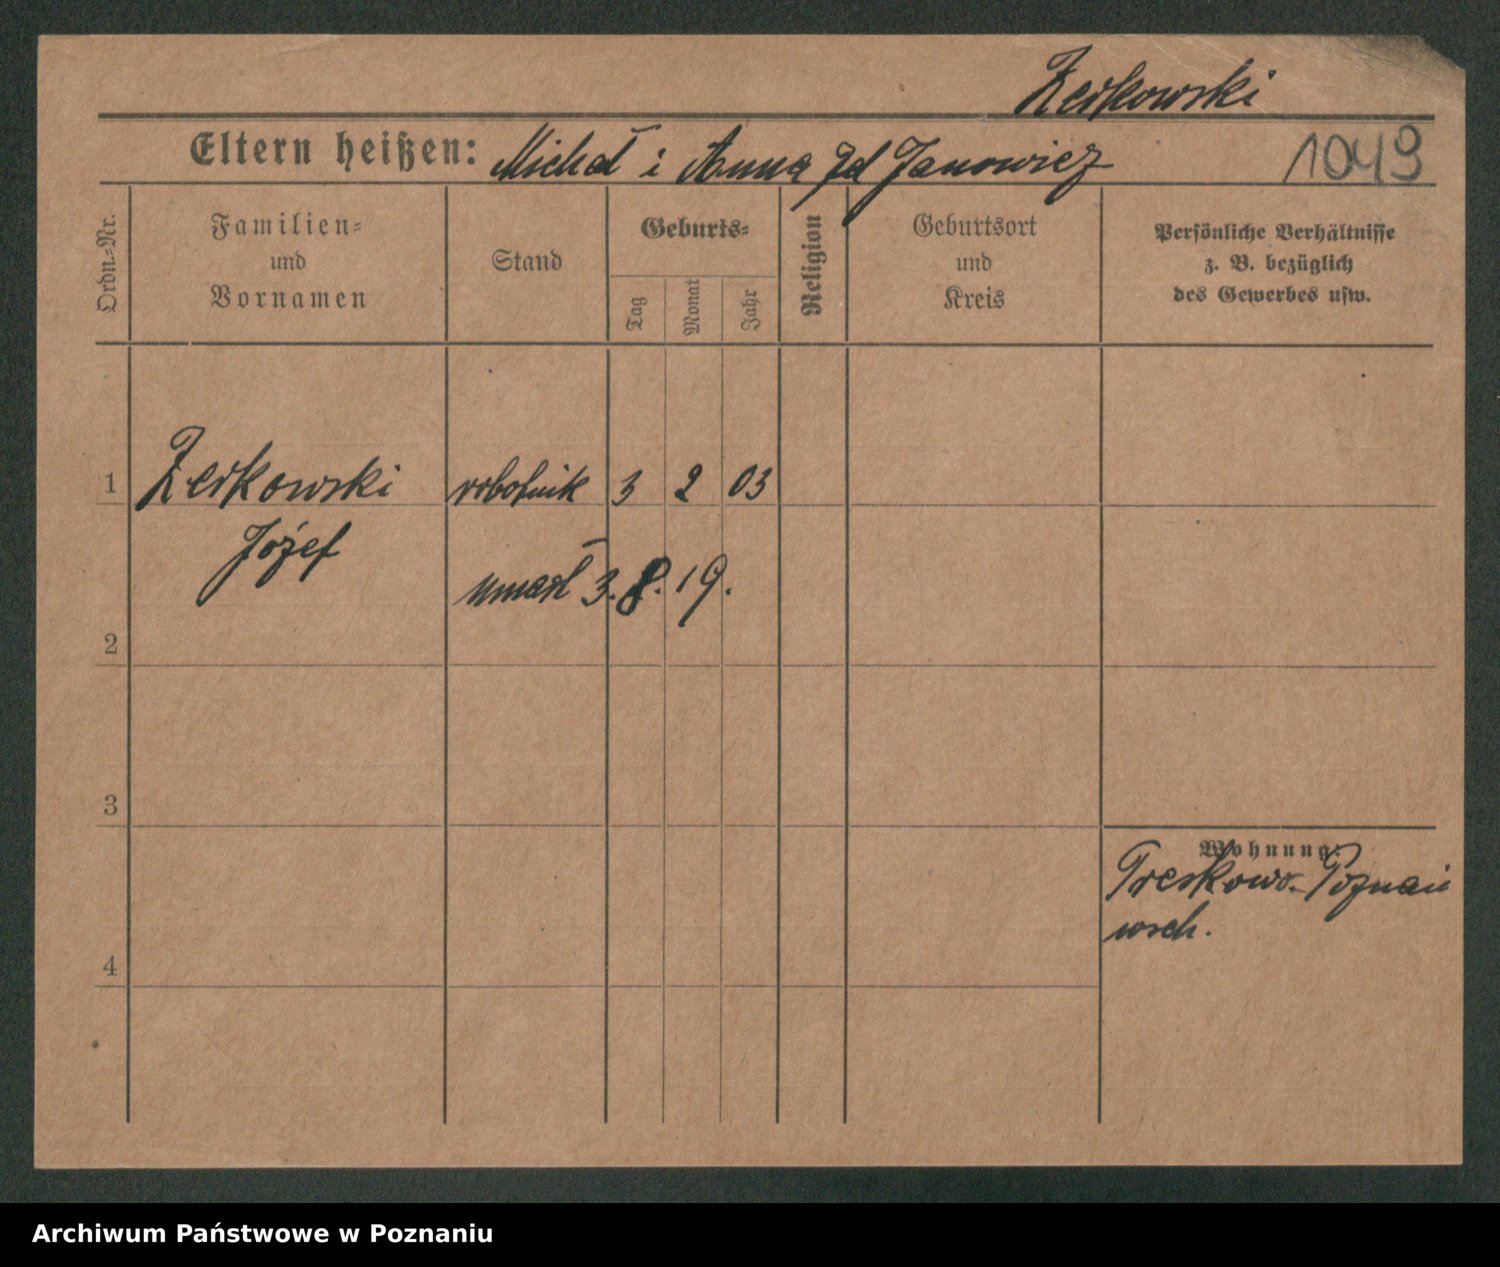 Zerkowski
Eltern heißen: Michał i Anna zd Janowicz
1049
Ordn.-Nr.
Familien-
und
Vornamen
Stand
Geburts-
Tag
Monat
Jahr
Religion
Geburtsort
und
Kreis
Persönliche Verhältnisse
z. B. bezüglich
des Gewerbes usw.
1 Zerkowski robotnik 3 2 03
Józef
umarł 3. 8. 19.
2
3
Wohnung:
Treskowo. Poznań
wsch.
4
Archiwum Państwowe w Poznaniu